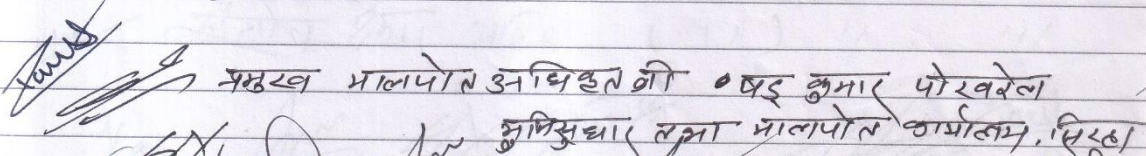 प्रमुख मालपोत अधिकृत श्री षड कुमार पोखरेल
भुमिसुधार तथा मालपोत कार्यालय, सिरहा